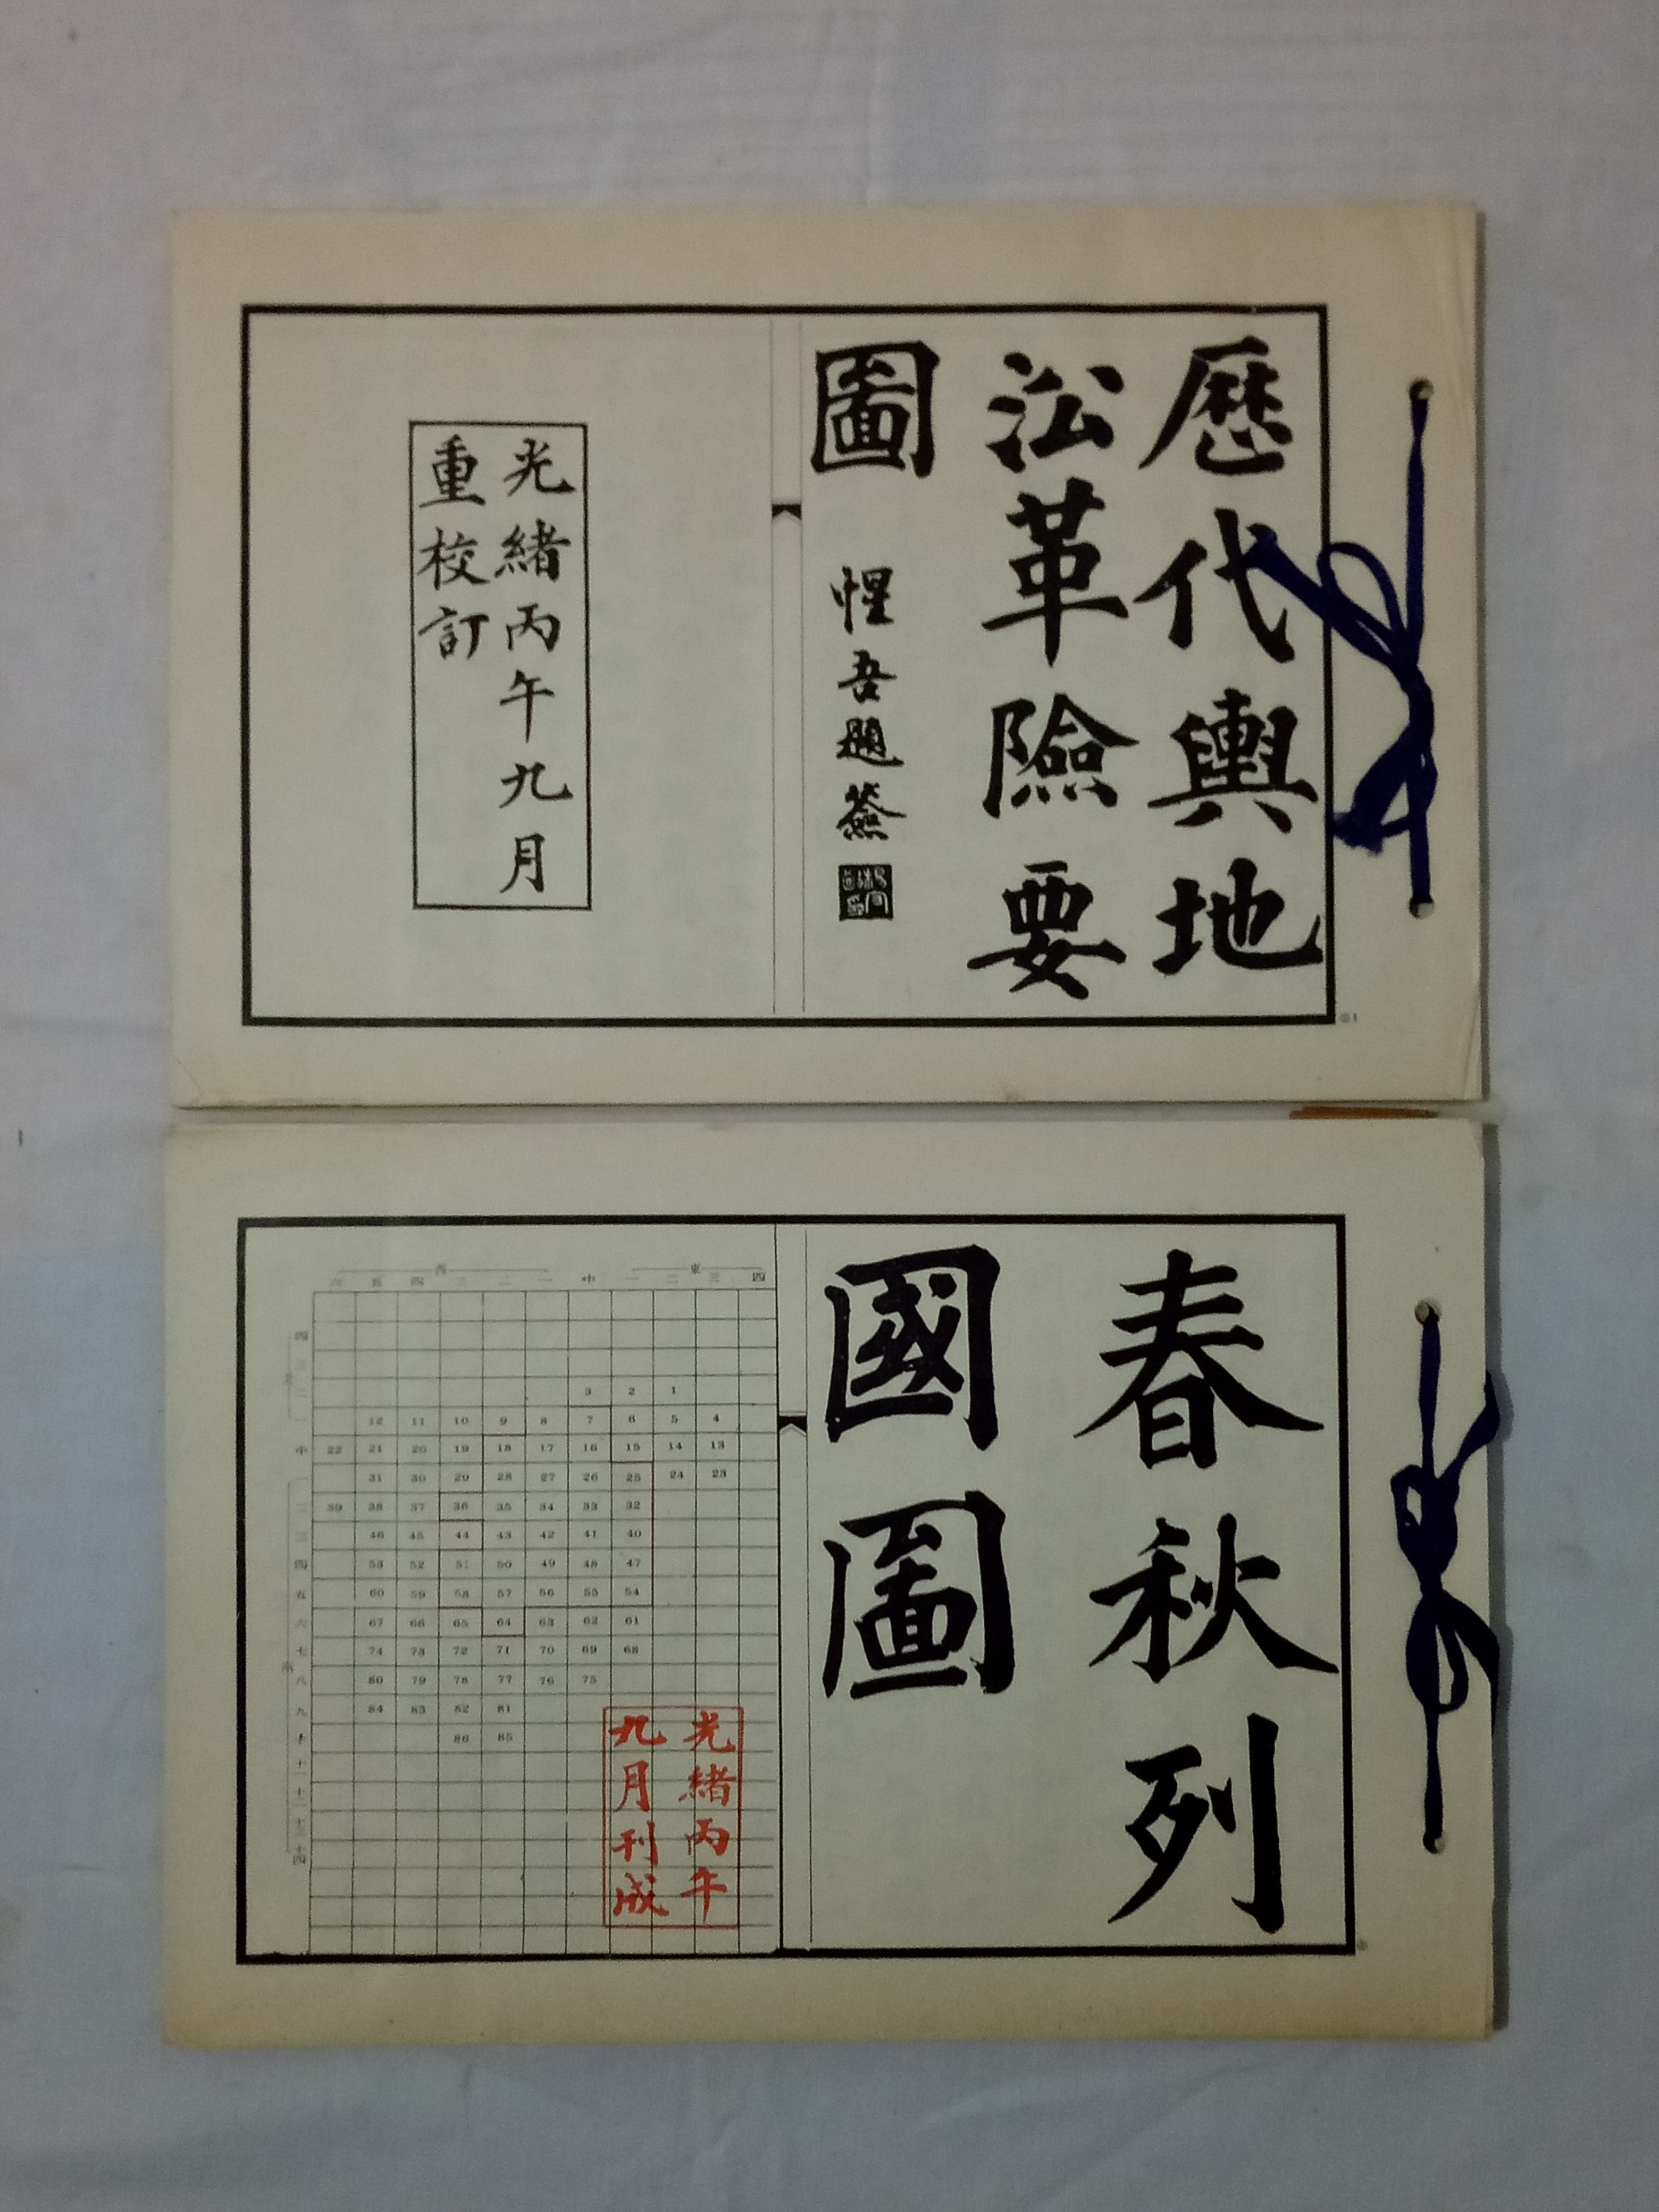 歷代輿地
沿革險要
圖
惺吾題簽
光緒丙午九月
重校訂
春秋列
國圖
西 東
六 五 四 三 二 一 中 一 二 三 四
3 2 1
12 11 10 9 8 7 6 5 4
中 22 21 20 19 18 17 16 15 14 13
31 30 29 28 27 26 25 24 23
二 39 38 37 36 35 34 33 32
三 46 45 44 43 42 41 40
四 53 52 51 50 49 48 47
五 60 59 58 57 56 55 54
六 67 66 65 64 63 62 61
七 74 73 72 71 70 69 68
八 80 79 78 77 76 75
九 84 83 82 81
十 86 85
南
光緒丙午
九月刊成